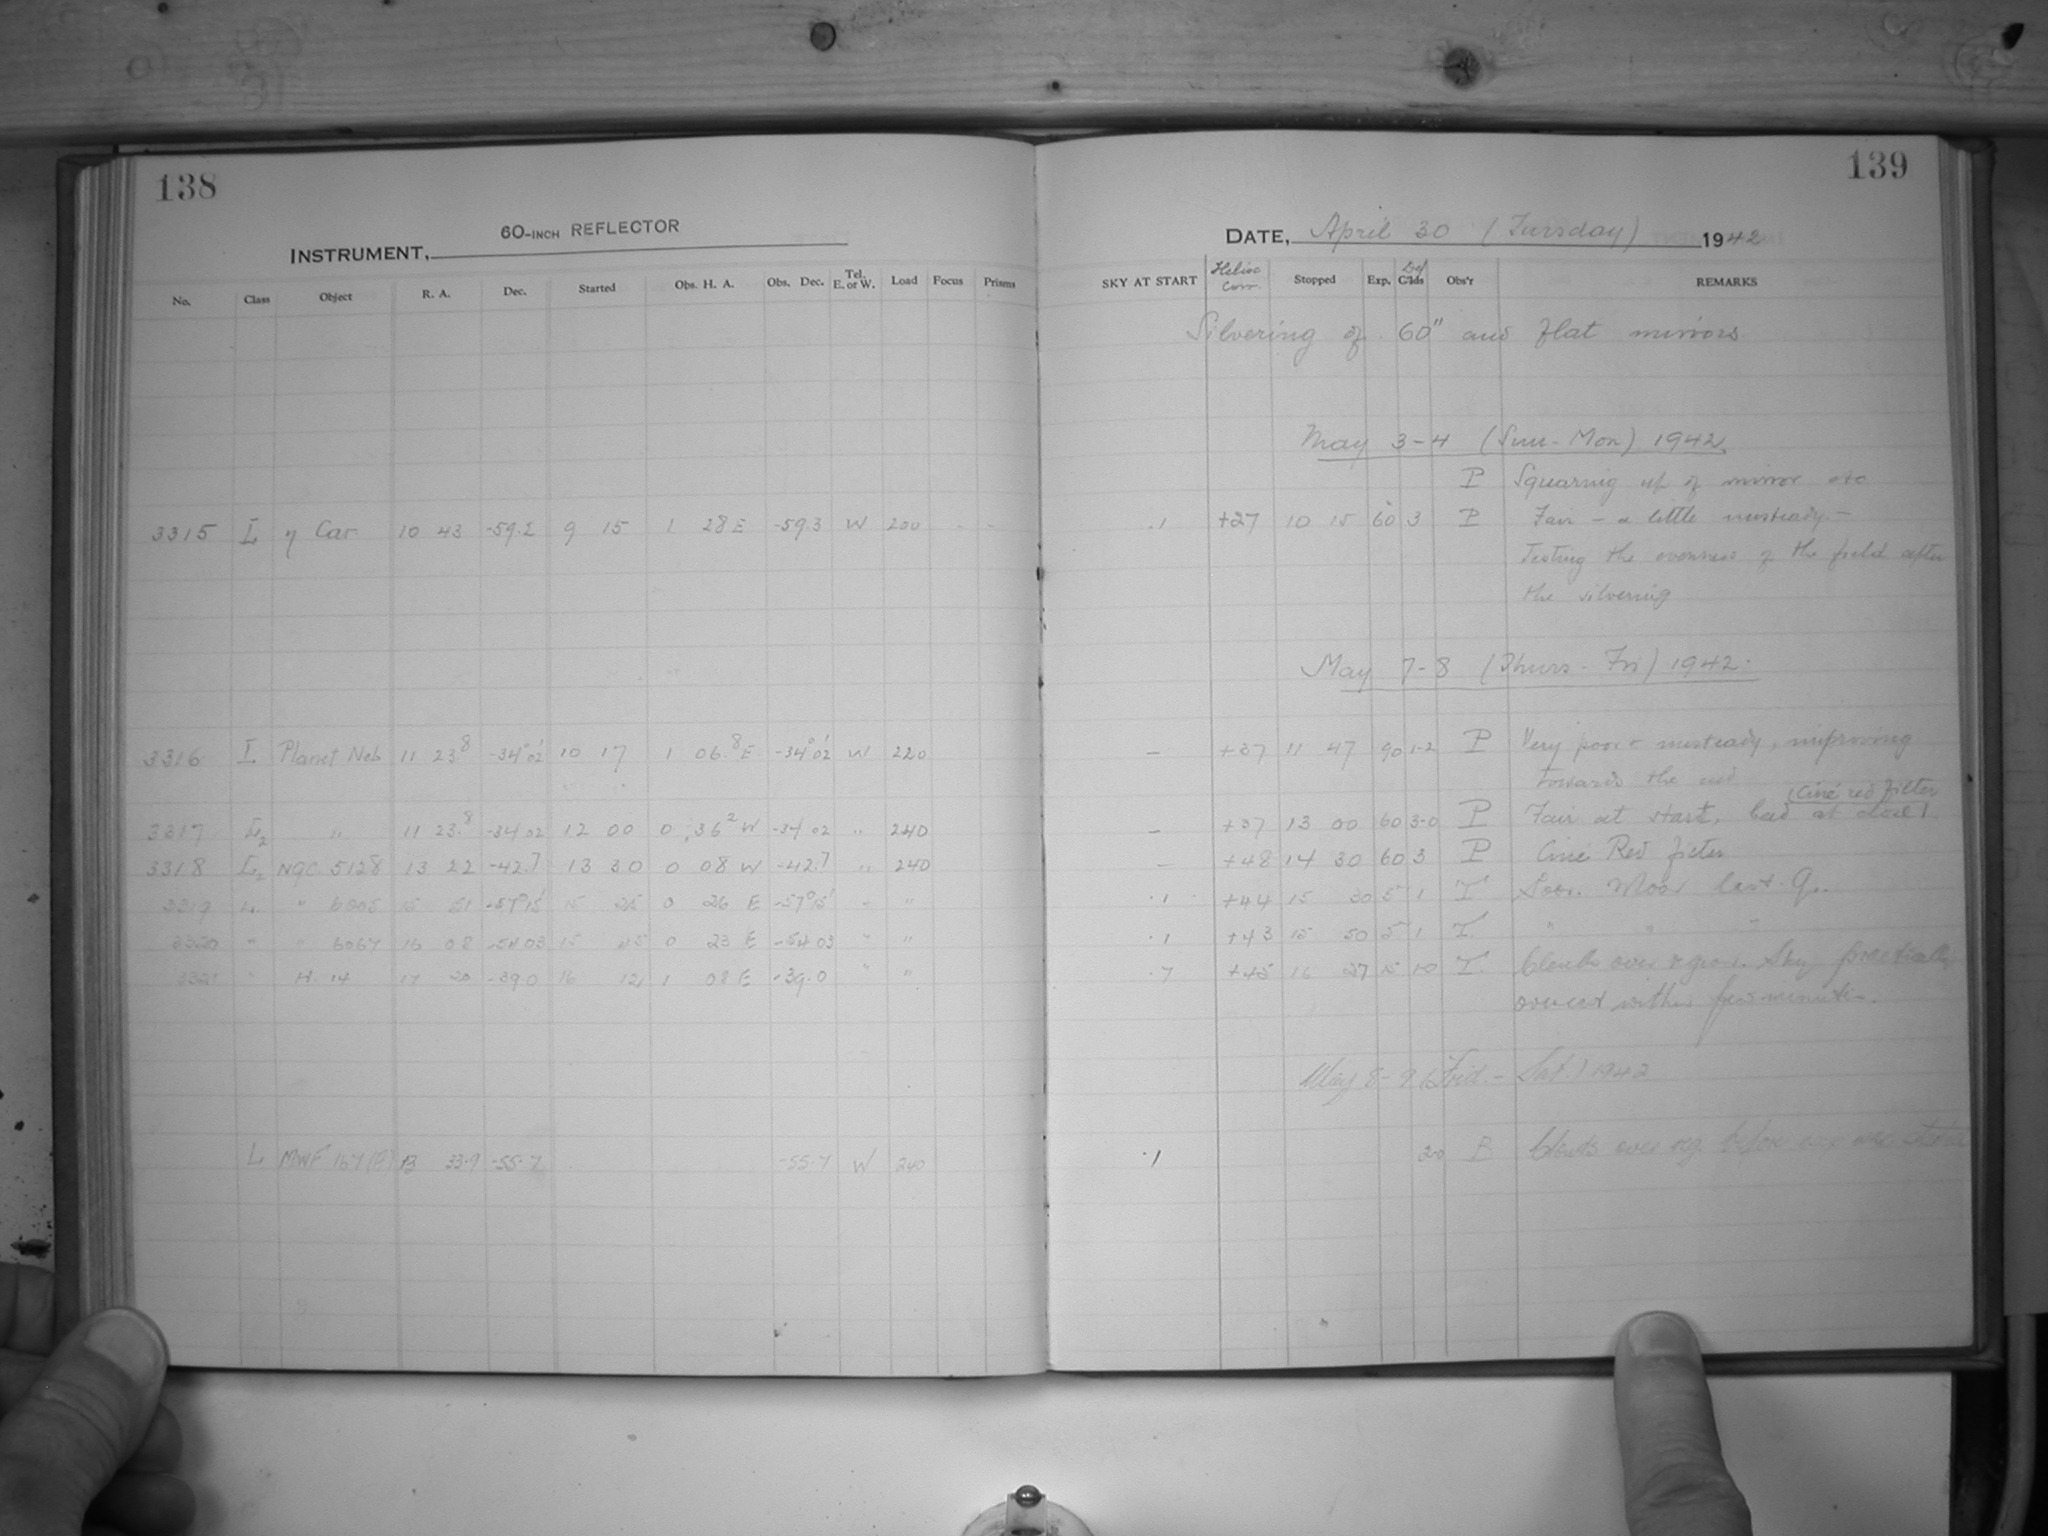 138
INSTRUMENT, 60-INCH REFLECTOR
No. Class Object R. A. Dec. Started Obs. H. A. Obs. Dec. Tel. E. or W. Load Focus Prisms
3315 L η Car 10 43 -59.2 9 15 1 28 E -59.3 W 200 - -
3316 L Planet Neb 11 23⁸ -34°02' 10 17 1 06.⁸ E -34°02' W 220
3317 L₂ " 11 23.⁸ -34 02 12 00 0 36² W -34 02 " 240
3318 L₂ NGC 5128 13 22 -42.7 13 30 0 08 W -42.7 " 240
3319 L " 15 51 -57°15' 15 25 0 26 E -57°15' " "
3320 " " 6067 16 08 -54 03 15 45 0 23 E -54 03 " "
3321 " H. 14 17 20 -39.0 16 12 1 08 E -39.0 " "
L MWF 167 (E) 13 33.9 -55.7 -55.7 W 240
139
DATE, April 30 (Tursday) 1942
SKY AT START Helioc Corr. Stopped Exp. Def Clds Obs'r REMARKS
Silvering of 60" and flat mirrors
May 3-4 (Sun-Mon) 1942
P Squaring up of mirror etc
.1 +27 10 15 60 3 P Fair - a little unsteady -
Testing the evenness of the field after
the silvering
May 7-8 (Thurs-Fri) 1942.
- +37 11 47 90 1-2 P Very poor & unsteady, improving
towards the end
(Ciné red filter
- +37 13 00 60 3-0 P Fair at start, bad at close)
- +48 14 30 60 3 P Ciné Red filter
.1 +44 15 30 5 1 T Moon last Q.
.1 +43 15 50 5 1 T. " " "
.7 +45 16 27 15 1-0 T. Clouds over region. Sky practically
overcast within few minutes.
May 8-9 (Frid. - Sat.) 1942
.1 2-0 B Clouds over reg. before exp. was